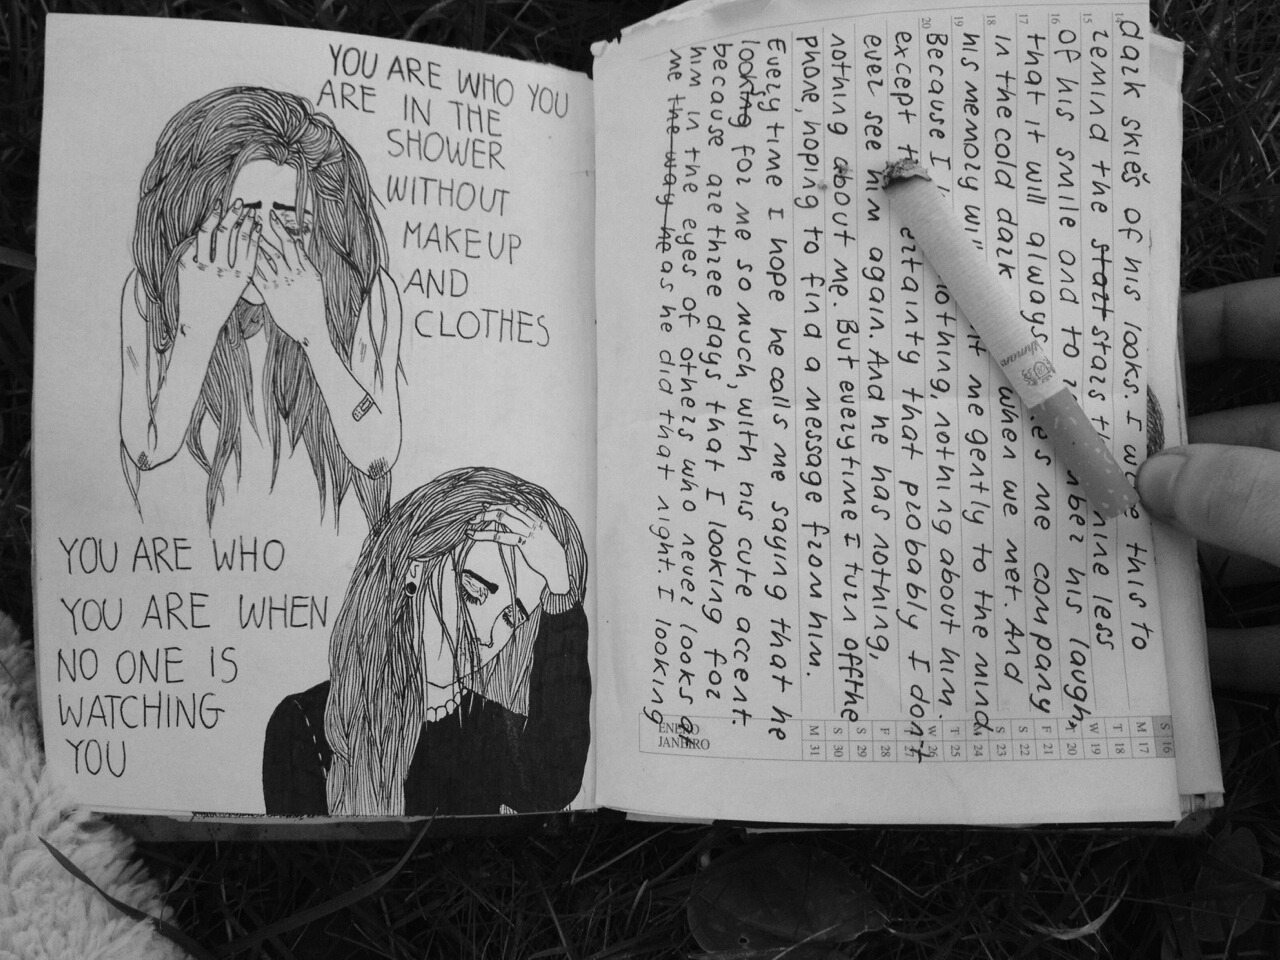 YOU ARE WHO YOU
ARE IN THE
SHOWER
WITHOUT
MAKEUP
AND
CLOTHES
YOU ARE WHO
YOU ARE WHEN
NO ONE IS
WATCHING
YOU
dark skies of his looks. I this to
remind the statt stars less
of his smile and to his laugh,
that it will always me company
in the cold dark when we met. And
his memory me gently to the mind.
Because I nothing, nothing about him.
except certainty that probably I don't
ever see him again. And he has nothing,
nothing about me. But everytime I turn offthe
phone, hoping to find a message from him.
Every time I hope he calls me saying that he
looking for me so much, with his cute accent.
because are three days that I looking for
him in the eyes of others who never looks at
me the way he as he did that night. I looking
14
15
16
17
18
19
20
S 16
M 17
T 18
W 19
T 20
F 21
S 22
S 23
M 24
T 25
W 26
T 27
F 28
S 29
S 30
M 31
ENERO
JANEIRO